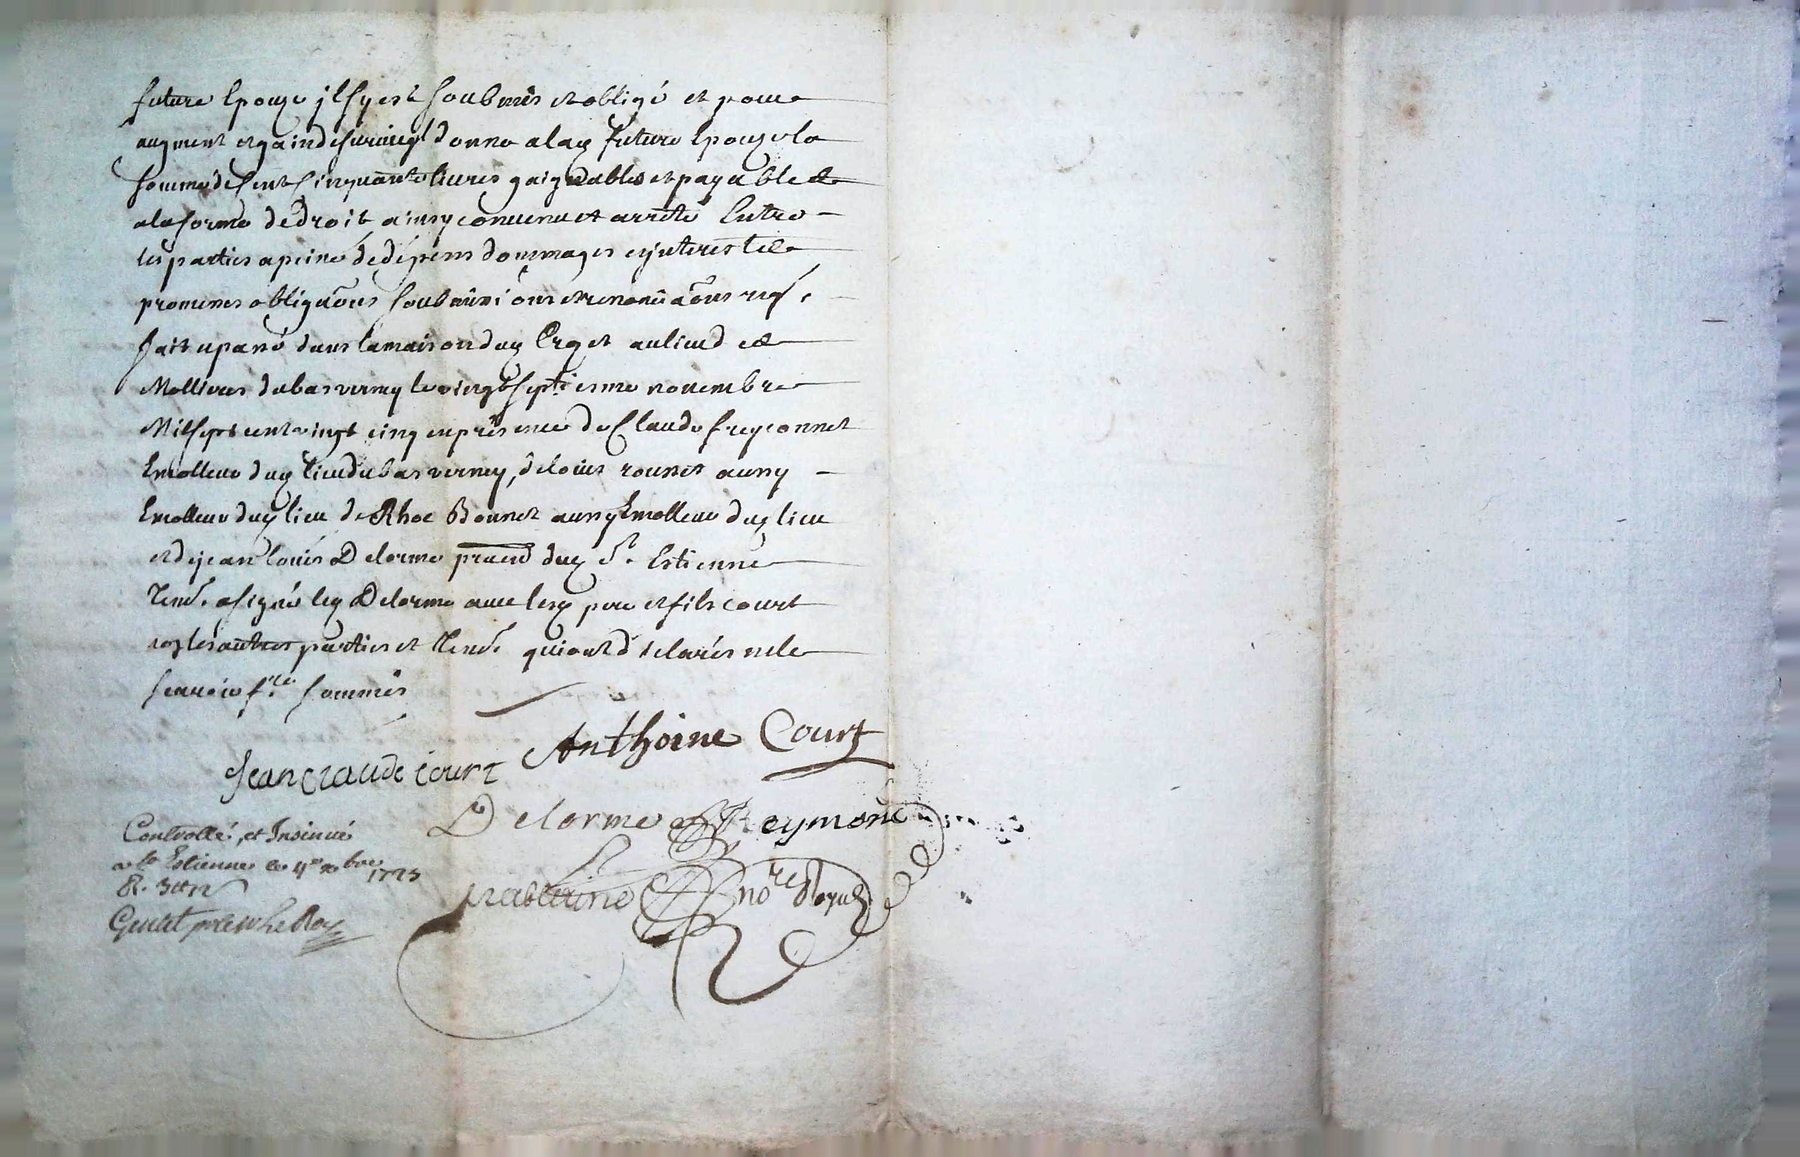 future Epouze jl sy est soubmis et obligé et pour
augment et gain de survie donne a lad future Epouze la
somme de Cent Cinquante livres gaignables et payable
a la forme de droit ainsy convenu et arreté Entre
les parties a peine de dépens dommages et jnterest
promesses obligaōns soubmissions et renonciaōns
fait et passé dans la maison dud et au lieu de
Mollieres du bas vernay le vingt septiesme novembre
Mil sept cent vingt cinq en présence de Claude freyconnet
Emolleur dud lieu du bas vernay, de louis rousset aussy
Emolleur dud lieu de Bonnet aussy Emolleur dud lieu
et de jean louis Delorme dud St. Estienne
a signé led Delorme avec lesd pere et fils court
non les autres parties et qui ont déclarés ne le
scavoir f. sommés
Anthoine Court
Jean claude court
Delorme Reymond
Controllé, et Insinué
a St Estienne le 4e xbre 1725
R.
no.re Royal